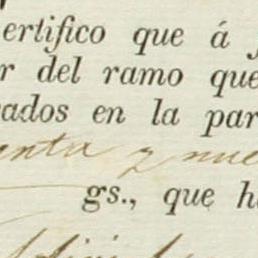 ertifico que á
r del ramo que
ados en la par
enta y nue
gs., que h